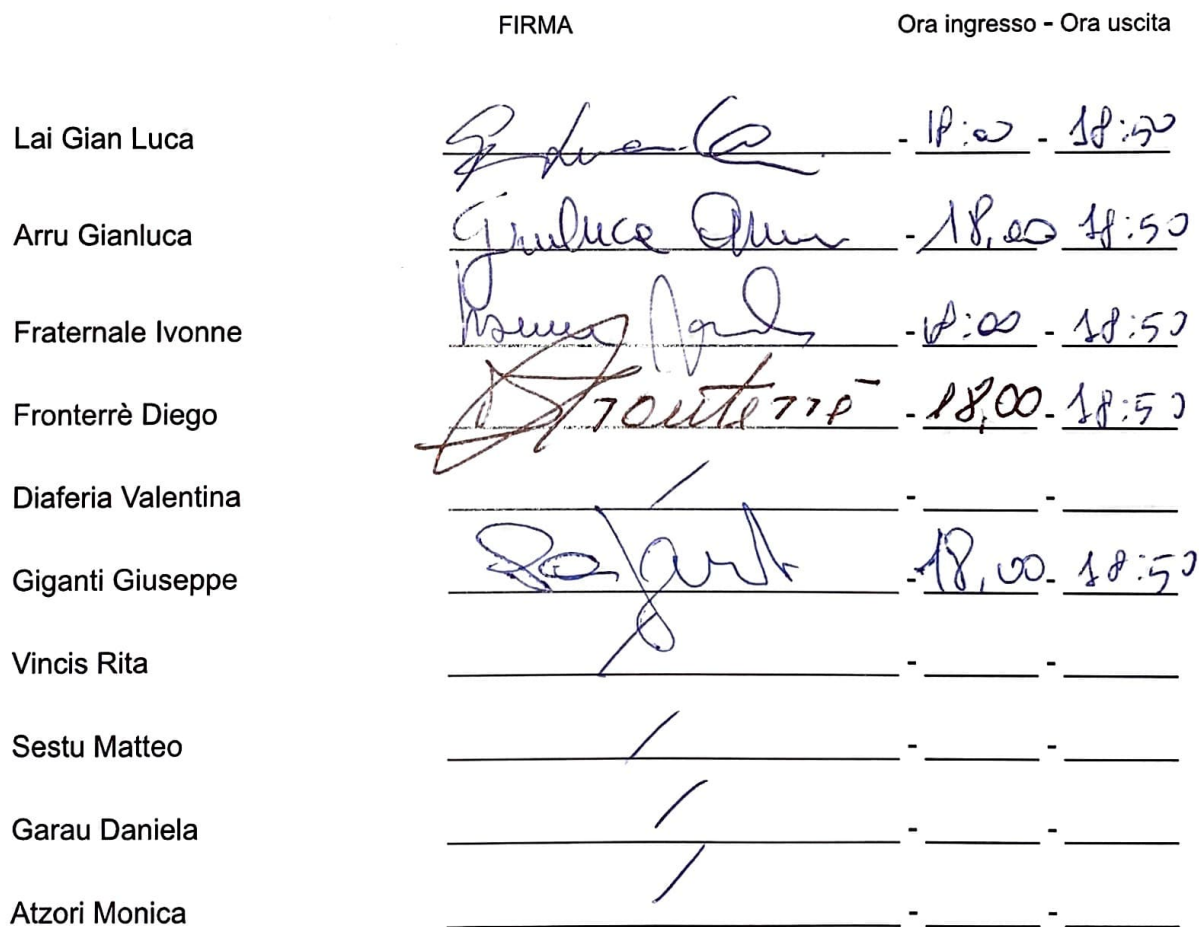 FIRMA Ora ingresso - Ora uscita
Lai Gian Luca - 18:00 - 18:50
Arru Gianluca Gianluca Arru - 18,00 18:50
Fraternale Ivonne - 18:00 - 18:50
Fronterrè Diego Fronterrè - 18,00 - 18:50
Diaferia Valentina / - -
Giganti Giuseppe - 18,00 - 18:50
Vincis Rita / - -
Sestu Matteo / - -
Garau Daniela / - -
Atzori Monica / - -